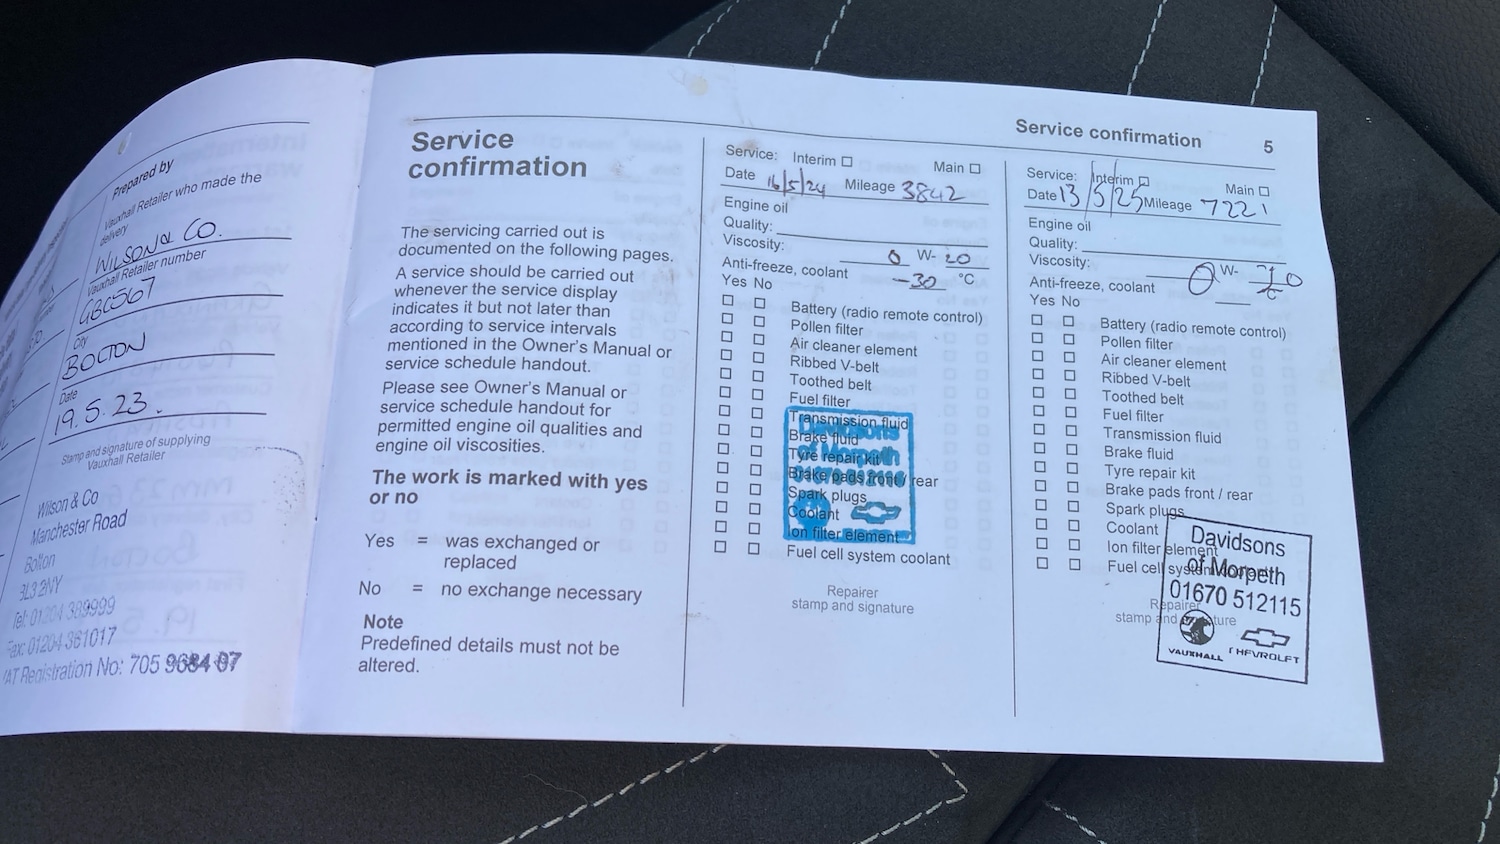 Prepared by
Vauxhall Retailer who made the
delivery
WILSON & CO.
Vauxhall Retailer number
GBC567
City
BOLTON
Date
19.5.23.
Stamp and signature of supplying
Vauxhall Retailer
Wilson & Co
Manchester Road
Bolton
BL3 2NY
Tel: 01204 389999
Fax: 01204 361017
VAT Registration No: 705 9684 07
Service confirmation 5
Service
confirmation
The servicing carried out is
documented on the following pages.
A service should be carried out
whenever the service display
indicates it but not later than
according to service intervals
mentioned in the Owner's Manual or
service schedule handout.
Please see Owner's Manual or
service schedule handout for
permitted engine oil qualities and
engine oil viscosities.
The work is marked with yes
or no
Yes = was exchanged or
replaced
No = no exchange necessary
Note
Predefined details must not be
altered.
Service: Interim Main
Date 16/5/24 Mileage 3842
Engine oil
Quality:
Viscosity: 0 W- 20
Anti-freeze, coolant -30 °C
Yes No
Battery (radio remote control)
Pollen filter
Air cleaner element
Ribbed V-belt
Toothed belt
Fuel filter
Transmission fluid
Brake fluid
Tyre repair kit
Brake pads front / rear
Spark plugs
Coolant
Ion filter element
Fuel cell system coolant
Davidsons
of Morpeth
Repairer
stamp and signature
Service: Interim Main
Date 13/5/25 Mileage 7221
Engine oil
Quality:
Viscosity: 0 W-
Anti-freeze, coolant °C
Yes No
Battery (radio remote control)
Pollen filter
Air cleaner element
Ribbed V-belt
Toothed belt
Fuel filter
Transmission fluid
Brake fluid
Tyre repair kit
Brake pads front / rear
Spark plugs
Coolant
Ion filter element
Fuel cell system coolant
Repairer
stamp and signature
Davidsons
of Morpeth
01670 512115
VAUXHALL CHEVROLET